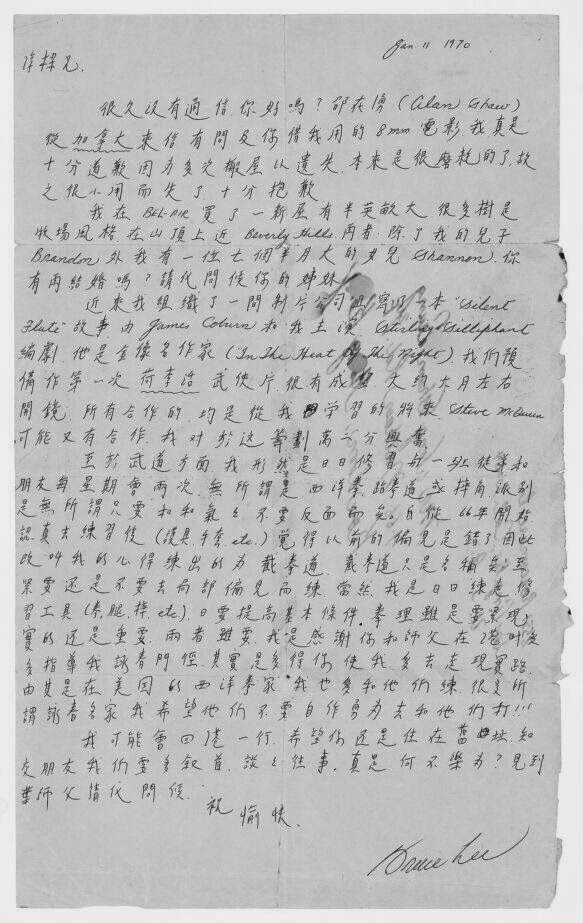 Jan. 11 1970
偉樑兄.
很久没有通信. 你好嗎? 邵在湧 (Alan Shaw)
從加拿大來信有問及你借我用的 8mm 電影. 我真是
十分道歉因为多次搬屋以遺失. 本來是很磨耗的了. 故
之很小用而失了十分抱歉
我在 BEL-AIR 買了一新屋有半英畝大 很多樹是
牧場風格 在山頂上近 Beverly Hills 再者. 除了我的兒子
Brandon 外我有一位七個半月大的女兒 Shannon. 你
有再結婚嗎? 請代問候你的姊妹
近來我組織了一間制片公司 寫了一本 "Silent
Flute" 故事由 James Coburn 和我主演 Stirling Silliphant
編劇. 他是金像名作家 (In The Heat Of The Night). 我們預
備作第一次 武俠片. 很有成 大約六月左右
開鏡. 所有合作的 均是從我学習的 將來 Steve McQueen
可能又有合作. 我对於这筹劃萬二分興奮
至於武道方面. 我 然是日日修習. 和
朋友每星期會兩次. 無所謂是西洋拳. 跆拳道. 或摔角. 派別
是無所謂只要和和氣气 不要反面而矣. 自從 66年開始
認真去練習後 (護具. 手套 etc.) 覺得以前的偏見是錯了. 因此
改叫我的心得練出的为 截拳道. 截拳道只是名稱矣. 至
緊要还是不要去局部偏見而練. 當然. 我是日日練走 修
習工具 (拳腿. 摔. etc). 日要提高基本條件. 拳理雖是要緊. 現
實的还是重要. 兩者雖要. 我是感謝你和師父在港時多
多指導我詠春門徑. 其實是多得你使我多去走現實路.
由其是在美国的西洋拳家. 我也多和他們練. 很多所
謂詠春名家 我希望他們不要自作勇为去和他們打!!!
我可能會回港一行. 希望你还是住在舊址. 知
交朋友我們要多叙首. 談談往事. 真是何不樂为? 見到
葉師父請代問候.
祝
愉快.
Bruce Lee